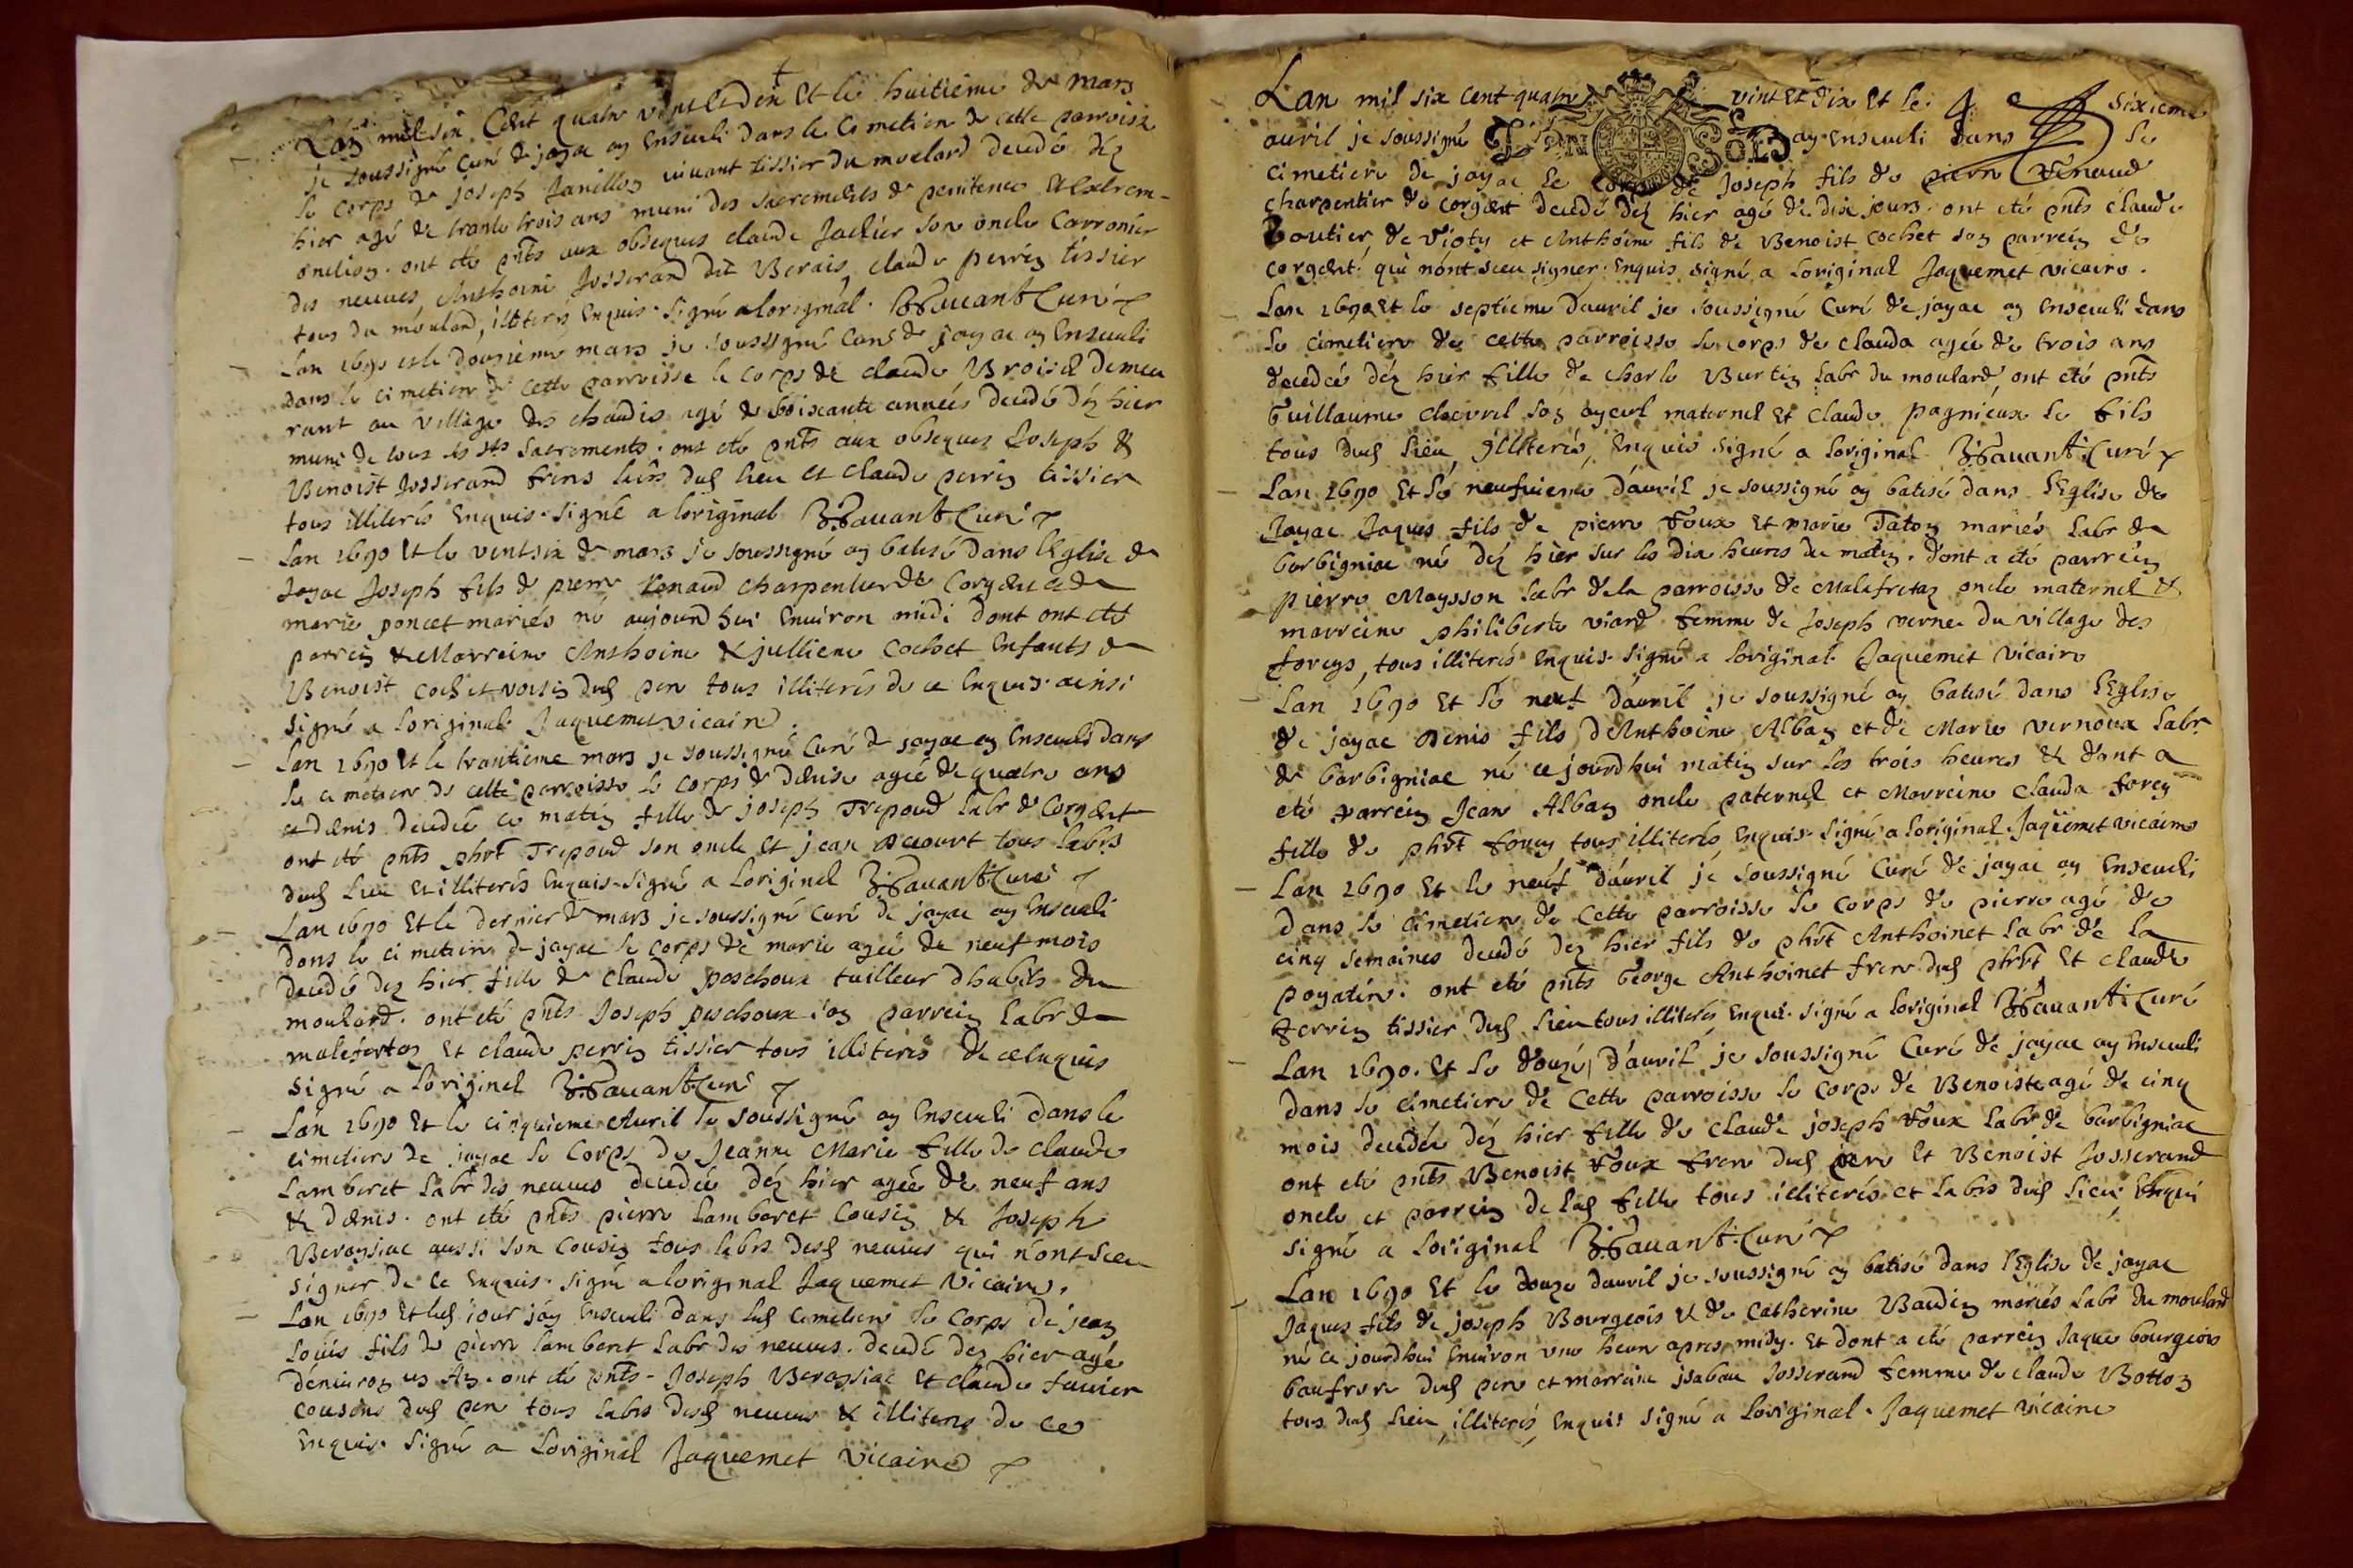 Lan mil six Cent quatre vint et dix Et le huitieme de mars
je soussigné Curé de jayac ay Enseveli dans le Cimetiere de cette parroisse
le corps de joseph Janillon vivant tissier du moulard decedé déz
hier agé de trante trois ans muni des sacrements de penitence Et Extrem-
onction. ont eté pnts aux obseques claude son oncle
des neuves, Anthoine Josserand dit claude perrin tissier
tous du moulard, illiterés Enquis. Signé a loriginal. Curé
Lan 1690 et le douzieme mars je soussigné Curé de jayac ay Enseveli
dans le cimetiere de cette parroisse le corps de claude demeu
rant au village des chaudis agé de soixante années decedé déz hier
muni de tous les sts sacrements. ont eté pnts aux obseques Joseph &
Benoist Josserand freres dud lieu et claude perrin tissier
tous illiterés Enquis. Signé a loriginal Curé
Lan 1690 Et le vent six de mars je soussigné ay batisé dans l'Eglise de
Jayac Joseph fils de pierre Renaud charpentier de Corgent & de
marie poncet mariés né aujourd'hui Environ midi dont ont eté
parrein & Marreine Anthoine & jullienne cochet Enfants de
Benoist cochet voisin dud pere tous illiterés de ce Enquis. ainsi
signé a loriginal. Jaquemet vicaire.
Lan 1690 Et le trantieme mars je soussigné Curé de jayac ay Enseveli dans
le cimetiere de cette parroisse le corps de denise agée de quatre ans
& demis decedée ce matin fille de joseph Trepoud labr de Corgent
ont eté pnts phrt Trepoud son oncle Et jean tous labrs
dud lieu et illiterés Enquis. Signé a loriginal Curé
Lan 1690 Et le dernier de mars je soussigné Curé de jayac ay Enseveli
dans le cimetiere de jayac le corps de marie agée de neuf mois
decedé dez hier fille de claude poschoux tailleur dhabits du
moulard. ont eté pnts Joseph peschoux son parrein labr de
malefertaz Et claude perrin tissier tous illiterés de ce enquis
signé a loriginal Curé
Lan 1690 Et le cinquieme Avril je soussigné ay Enseveli dans le
cimetiere de jayac le Corps de Jeanne Marie fille de claude
Lamberet labr des neuves decedée déz hier agée de neuf ans
& demis. ont eté pnts pierre Lamberet Cousin & Joseph
Beraysiac aussi son cousin tous labrs desd neuves qui n'ont sceu
signer de ce Enquis. Signé a loriginal Jaquemet vicaire.
Lan 1690 Et led jour jay Enseveli dans led cimetiere le Corps de jean
Louis fils de pierre Lamberet labr des neuves. decedé dez hier agé
denviron un An. ont eté pnts. Joseph Beraysiac Et claude
cousins dud pere tous labrs desd neuves & illiteres de ce
Enquis. Signé a loriginal Jaquemet vicaire
Lan mil six cent quatre vint Et dix Et le sixieme
avril je soussigné ay Enseveli dans le
cimetiere de jayac le corps de Joseph fils de pierre Renaud
charpentier de corgent decedé déz hier agé de dix jours. ont eté pnts claude
Boutier de Vioty et Anthoine fils de Benoist cochet son parrein de
corgent. qui n'ont sceu signer. Enquis signé a loriginal Jaquemet vicaire.
Lan 1690 Et le septieme d'avril je soussigné Curé de jayac ay Enseveli dans
le cimetiere de cette parroisse le corps de clauda agée de trois ans
decedée déz hier fille de charle Burtin labr du moulard, ont eté pnts
Guillaume chevrel son ayeul maternel Et claude pagnieux le fils
tous dud lieu, Illiterés, Enquis signé a loriginal. Curé
Lan 1690 Et le neufvieme d'avril je soussigné ay batisé dans l'Eglise de
Jayac Jaques fils de pierre Foux Et marie Taton mariés labr de
barbigniac né déz hier sur les dix heures du matin. dont a eté parrein
pierre Maysson labr de la parroisse de Malafretaz oncle maternel &
marreine philiberte viard femme de Joseph verne du village des
foreys, tous illiterés Enquis. Signé a loriginal. Jaquemet vicaire
Lan 1690 Et le neuf d'avril je soussigné ay batisé dans l'Eglise
de jayac Denis fils d'Anthoine Alban et de Marie vernoux labr
de barbigniac né ce jourd'hui matin sur les trois heures & dont a
eté parrein Jean Alban oncle paternel et Marreine clauda forey
fille de phrt forey tous illiterés Enquis. Signé a loriginal. Jaquemet vicaire
Lan 1690 Et le neuf d'avril je soussigné Curé de jayac ay Enseveli
dans le cimetiere de Cette parroisse le Corps de pierre agé de
cinq semaines decedé dez hier fils de phrt Anthoinet labr de la
poyatiere. ont eté pnts George Anthoinet frere dud phrt Et claude
perrin tissier dud lieu tous illiterés, Enquis. signé a loriginal Curé
Lan 1690. Et le douze d'avril je soussigné Curé de jayac ay Enseveli
dans le cimetiere de Cette parroisse le Corps de Benoiste agé de cinq
mois decedée déz hier fille de claude joseph Foux labr de barbigniac
ont eté pnts Benoist Foux frere dud pere Et Benoist Josserand
oncle et parrein de lad fille tous illiterés et labrs dud lieu, Enquis
signé a loriginal Curé
Lan 1690 Et le douze davril je soussigné ay batisé dans l'Eglise de jayac
Jaques fils de joseph Bourgeois & de Catherine Baudin mariés labr du moulard
né ce jourdhui Environ une heure apres midy. Et dont a eté parrein Jaque bourgeois
baufrere dud pere et marreine jsabeau Josserand femme de claude Botton
tous dud lieu, illiterés, Enquis signé a loriginal. Jaquemet vicaire